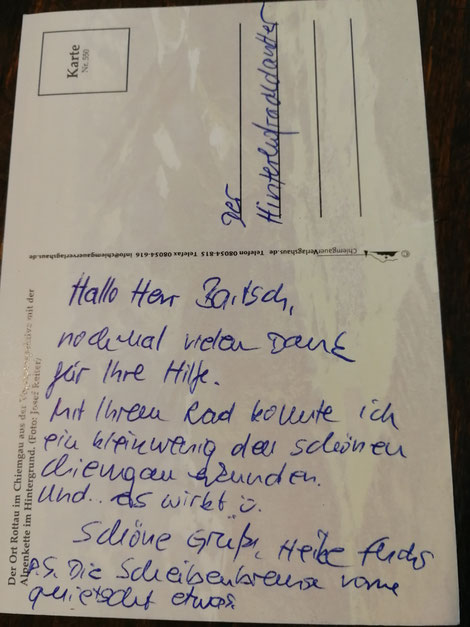 Karte
Nr. 550
Der
Hallo Herr Bartsch,
nochmal vielen Dank
für Ihre Hilfe.
Mit Ihrem Rad konnte ich
ein kleinwenig den schönen
Chiemgau erkunden.
Und.. es wirkt ü.
Schöne Grüße, Heike Fuchs
P.S. Die Scheibenbremse vorne
quietscht etwas
© Chiemgauer Verlagshaus.de Telefon 08054-815 Telefax 08054-616 info@chiemgauerverlagshaus.de
Der Ort Rottau im Chiemgau aus der mit der
Alpenkette im Hintergrund. (Foto: Josef Reiter)